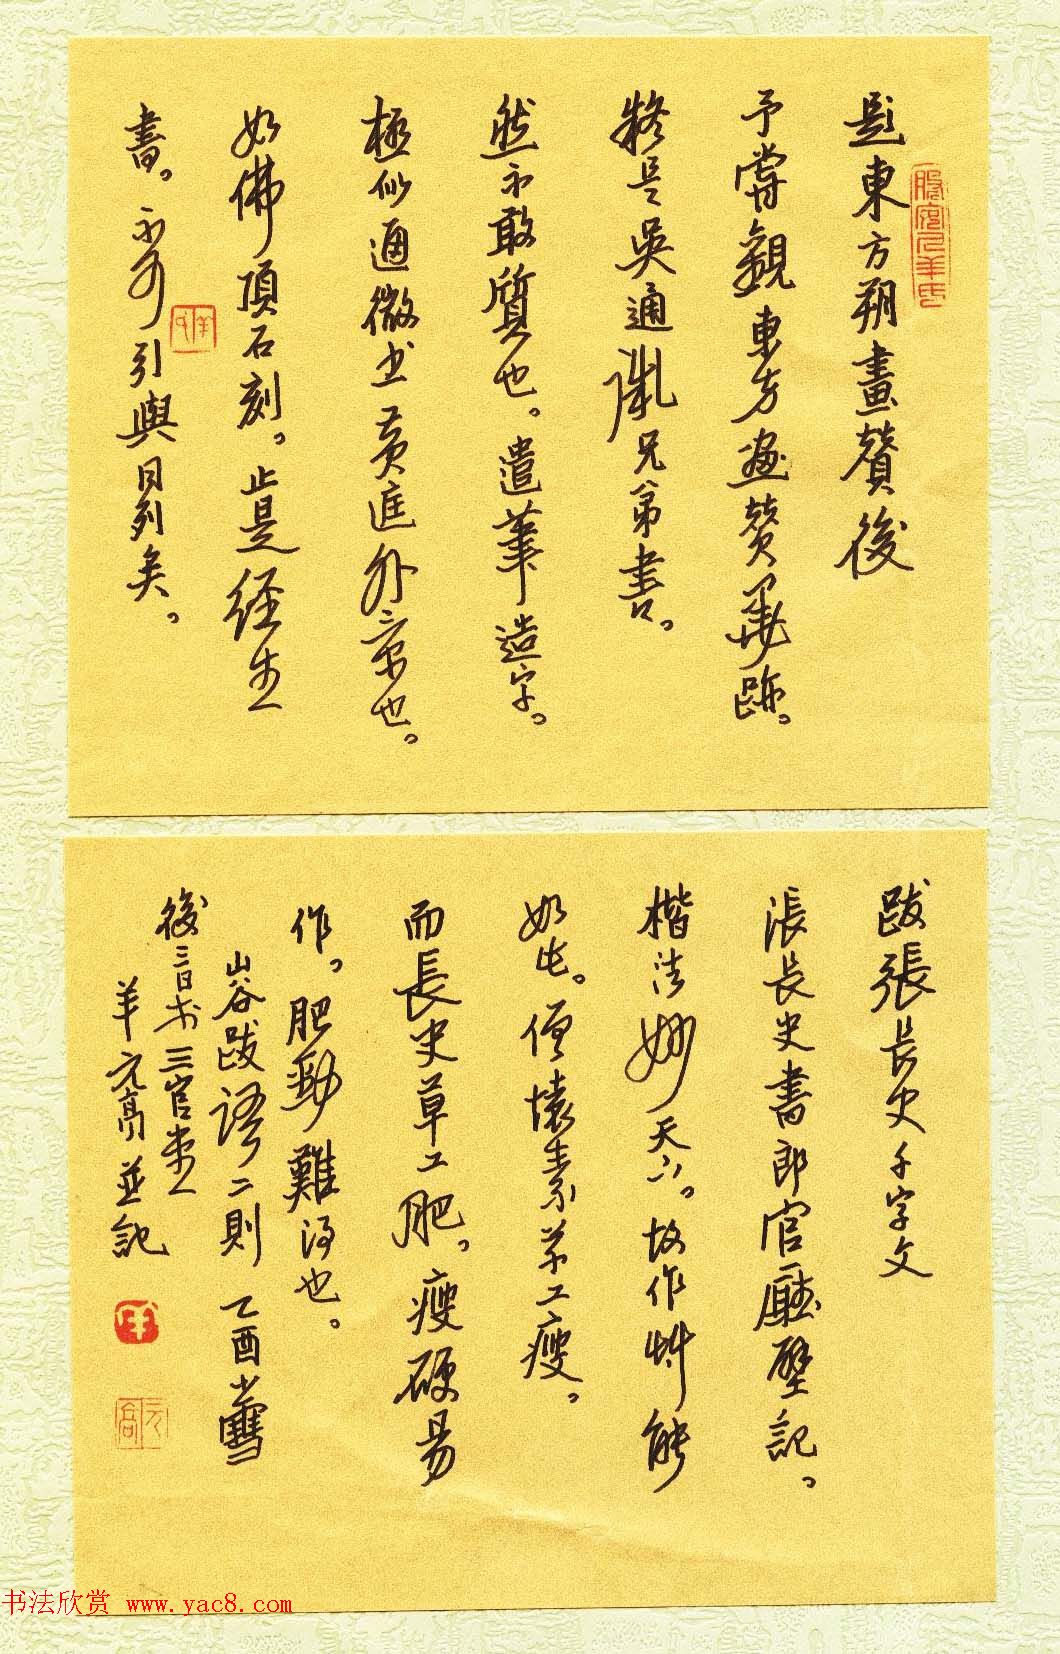 題東方朔畫贊後
予嘗觀東方畫贊墨跡。
疑是吳通微兄弟書。
然不敢質也。遣筆造字。
極似通微書黃庭外景也。
如佛頂石刻。止是經生
書。不可引與同列矣。
跋張長史千字文
張長史書郎官廳壁記。
楷法妙天下。故作艸能
如此。僧懷素草工瘦。
而長史草工肥。瘦硬易
作。肥勁難得也。
山谷跋語二則 乙酉小雪
後三日書三官堂
羊元高並記
羊
元高
书法欣赏 www.yac8.com